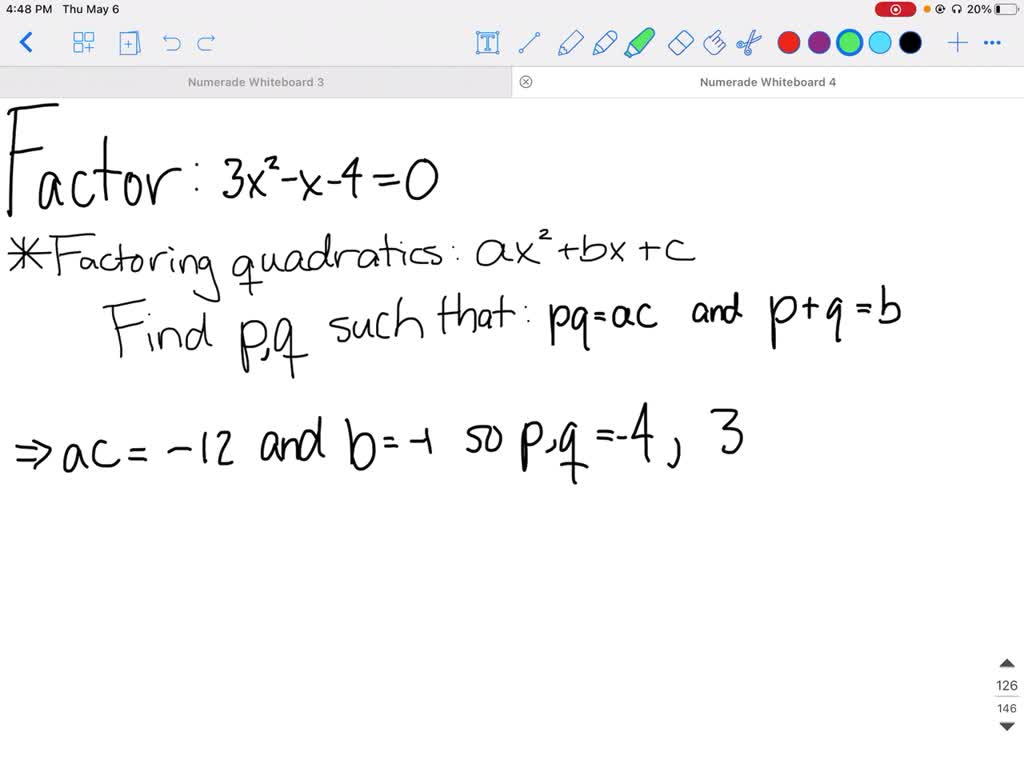 4:48 PM Thu May 6 20%
Numerade Whiteboard 3 Numerade Whiteboard 4
Factor: 3x²-x-4=0
*Factoring quadratics: ax²+bx+c
Find p,q such that: pq=ac and p+q=b
⇒ ac= -12 and b=-1 so p,q =-4, 3
126
146